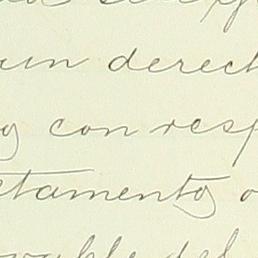 un derech
con resp
ctamento o
vable del